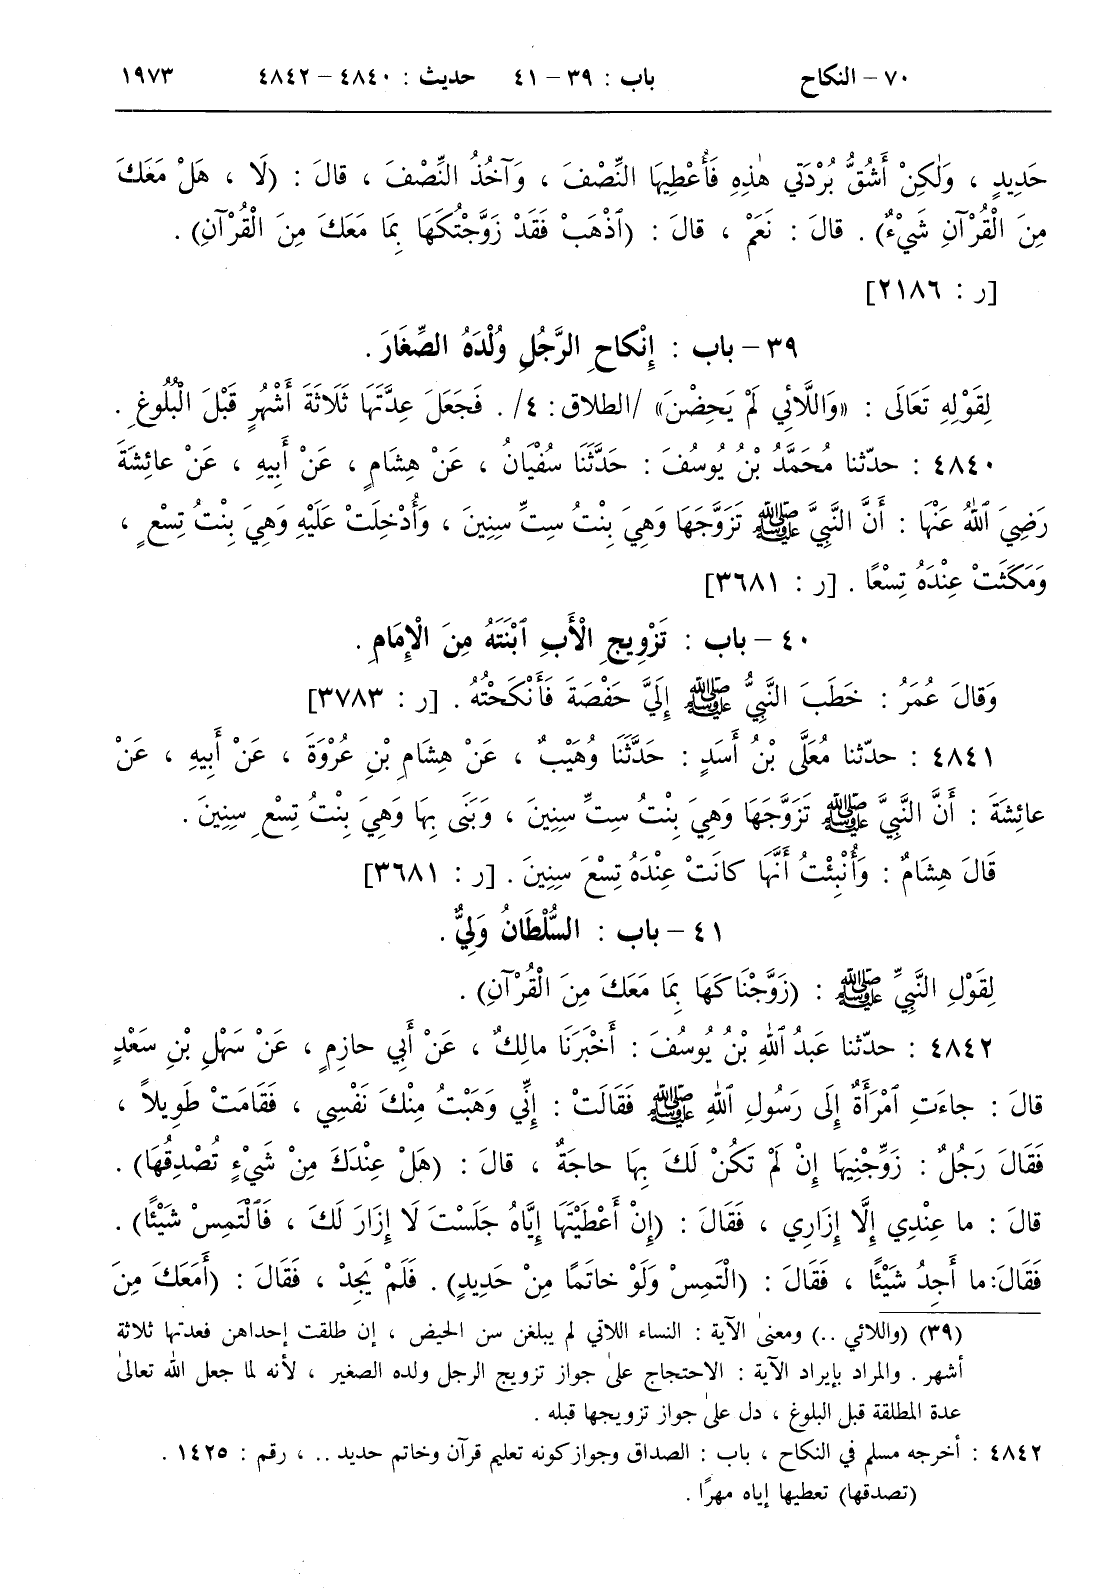 ٧٠ – النكاح باب : ٣٩ – ٤١ حديث : ٤٨٤٠ – ٤٨٤٢ ١٩٧٣
حَدِيدٍ ، وَلٰكِنْ أَشُقُّ بُرْدَتِي هٰذِهِ فَأُعْطِيهَا النِّصْفَ ، وَآخُذُ النِّصْفَ ، قالَ : (لَا ، هَلْ مَعَكَ
مِنَ الْقُرْآنِ شَيْءٌ) . قالَ : نَعَمْ ، قالَ : (ٱذْهَبْ فَقَدْ زَوَّجْتُكَهَا بِمَا مَعَكَ مِنَ الْقُرْآنِ) .
[ر : ٢١٨٦]
٣٩ – باب : إِنْكاحِ الرَّجُلِ وُلْدَهُ الصِّغَارَ .
لِقَوْلِهِ تَعَالَى : «وَاللَّائِي لَمْ يَحِضْنَ» /الطلاق: ٤/ . فَجَعَلَ عِدَّتَهَا ثَلَاثَةَ أَشْهُرٍ قَبْلَ الْبُلُوغِ .
٤٨٤٠ : حدّثنا مُحَمَّدُ بْنُ يُوسُفَ : حَدَّثَنَا سُفْيَانُ ، عَنْ هِشَامٍ ، عَنْ أَبِيهِ ، عَنْ عائِشَةَ
رَضِيَ ٱللهُ عَنْهَا : أَنَّ النَّبِيَّ ﷺ تَزَوَّجَهَا وَهِيَ بِنْتُ سِتِّ سِنِينَ ، وَأُدْخِلَتْ عَلَيْهِ وَهِيَ بِنْتُ تِسْعٍ ،
وَمَكَثَتْ عِنْدَهُ تِسْعًا . [ر : ٣٦٨١]
٤٠ – باب : تَزْوِيجِ الْأَبِ ٱبْنَتَهُ مِنَ الْإِمَامِ .
وَقالَ عُمَرُ : خَطَبَ النَّبِيُّ ﷺ إِلَيَّ حَفْصَةَ فَأَنْكَحْتُهُ . [ر : ٣٧٨٣]
٤٨٤١ : حدّثنا مُعَلَّى بْنُ أَسَدٍ : حَدَّثَنَا وُهَيْبٌ ، عَنْ هِشَامِ بْنِ عُرْوَةَ ، عَنْ أَبِيهِ ، عَنْ
عائِشَةَ : أَنَّ النَّبِيَّ ﷺ تَزَوَّجَهَا وَهِيَ بِنْتُ سِتِّ سِنِينَ ، وَبَنَى بِهَا وَهِيَ بِنْتُ تِسْعِ سِنِينَ .
قَالَ هِشَامٌ : وَأُنْبِئْتُ أَنَّهَا كانَتْ عِنْدَهُ تِسْعَ سِنِينَ . [ر : ٣٦٨١]
٤١ – باب : السُّلْطَانُ وَلِيٌّ .
لِقَوْلِ النَّبِيِّ ﷺ : (زَوَّجْنَاكَهَا بِمَا مَعَكَ مِنَ الْقُرْآنِ) .
٤٨٤٢ : حدّثنا عَبدُ ٱللهِ بْنُ يُوسُفَ : أَخْبَرَنَا مالِكٌ ، عَنْ أَبِي حازِمٍ ، عَنْ سَهْلِ بْنِ سَعْدٍ
قالَ : جاءَتِ ٱمْرَأَةٌ إِلَى رَسُولِ ٱللهِ ﷺ فَقَالَتْ : إِنِّي وَهَبْتُ مِنْكَ نَفْسِي ، فَقَامَتْ طَوِيلاً ،
فَقَالَ رَجُلٌ : زَوِّجْنِيهَا إِنْ لَمْ تَكُنْ لَكَ بِهَا حاجَةٌ ، قالَ : (هَلْ عِنْدَكَ مِنْ شَيْءٍ تُصْدِقُهَا) .
قالَ : ما عِنْدِي إِلَّا إِزَارِي ، فَقَالَ : (إِنْ أَعْطَيْتَهَا إِيَّاهُ جَلَسْتَ لَا إِزَارَ لَكَ ، فَٱلْتَمِسْ شَيْئًا) .
فَقَالَ: ما أَجِدُ شَيْئًا ، فَقَالَ : (الْتَمِسْ وَلَوْ خاتَمًا مِنْ حَدِيدٍ) . فَلَمْ يَجِدْ ، فَقَالَ : (أَمَعَكَ مِنَ
(٣٩) (واللائي ..) ومعنى الآية : النساء اللاتي لم يبلغن سن الحيض ، إن طلقت إحداهن فعدتها ثلاثة
أشهر . والمراد بإيراد الآية : الاحتجاج على جواز تزويج الرجل ولده الصغير ، لأنه لما جعل الله تعالى
عدة المطلقة قبل البلوغ ، دل على جواز تزويجها قبله .
٤٨٤٢ : أخرجه مسلم في النكاح ، باب : الصداق وجواز كونه تعليم قرآن وخاتم حديد .. ، رقم : ١٤٢٥ .
(تصدقها) تعطيها إياه مهرًا .